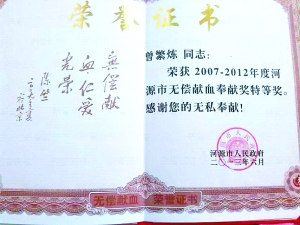 荣誉证书
无偿献
血仁爱
光荣
曾繁炼 同志：
荣获2007-2012年度河
源市无偿献血奉献奖特等奖。
感谢您的无私奉献！
河源市人民政府
二〇一三年六月
无偿献血 荣誉证书